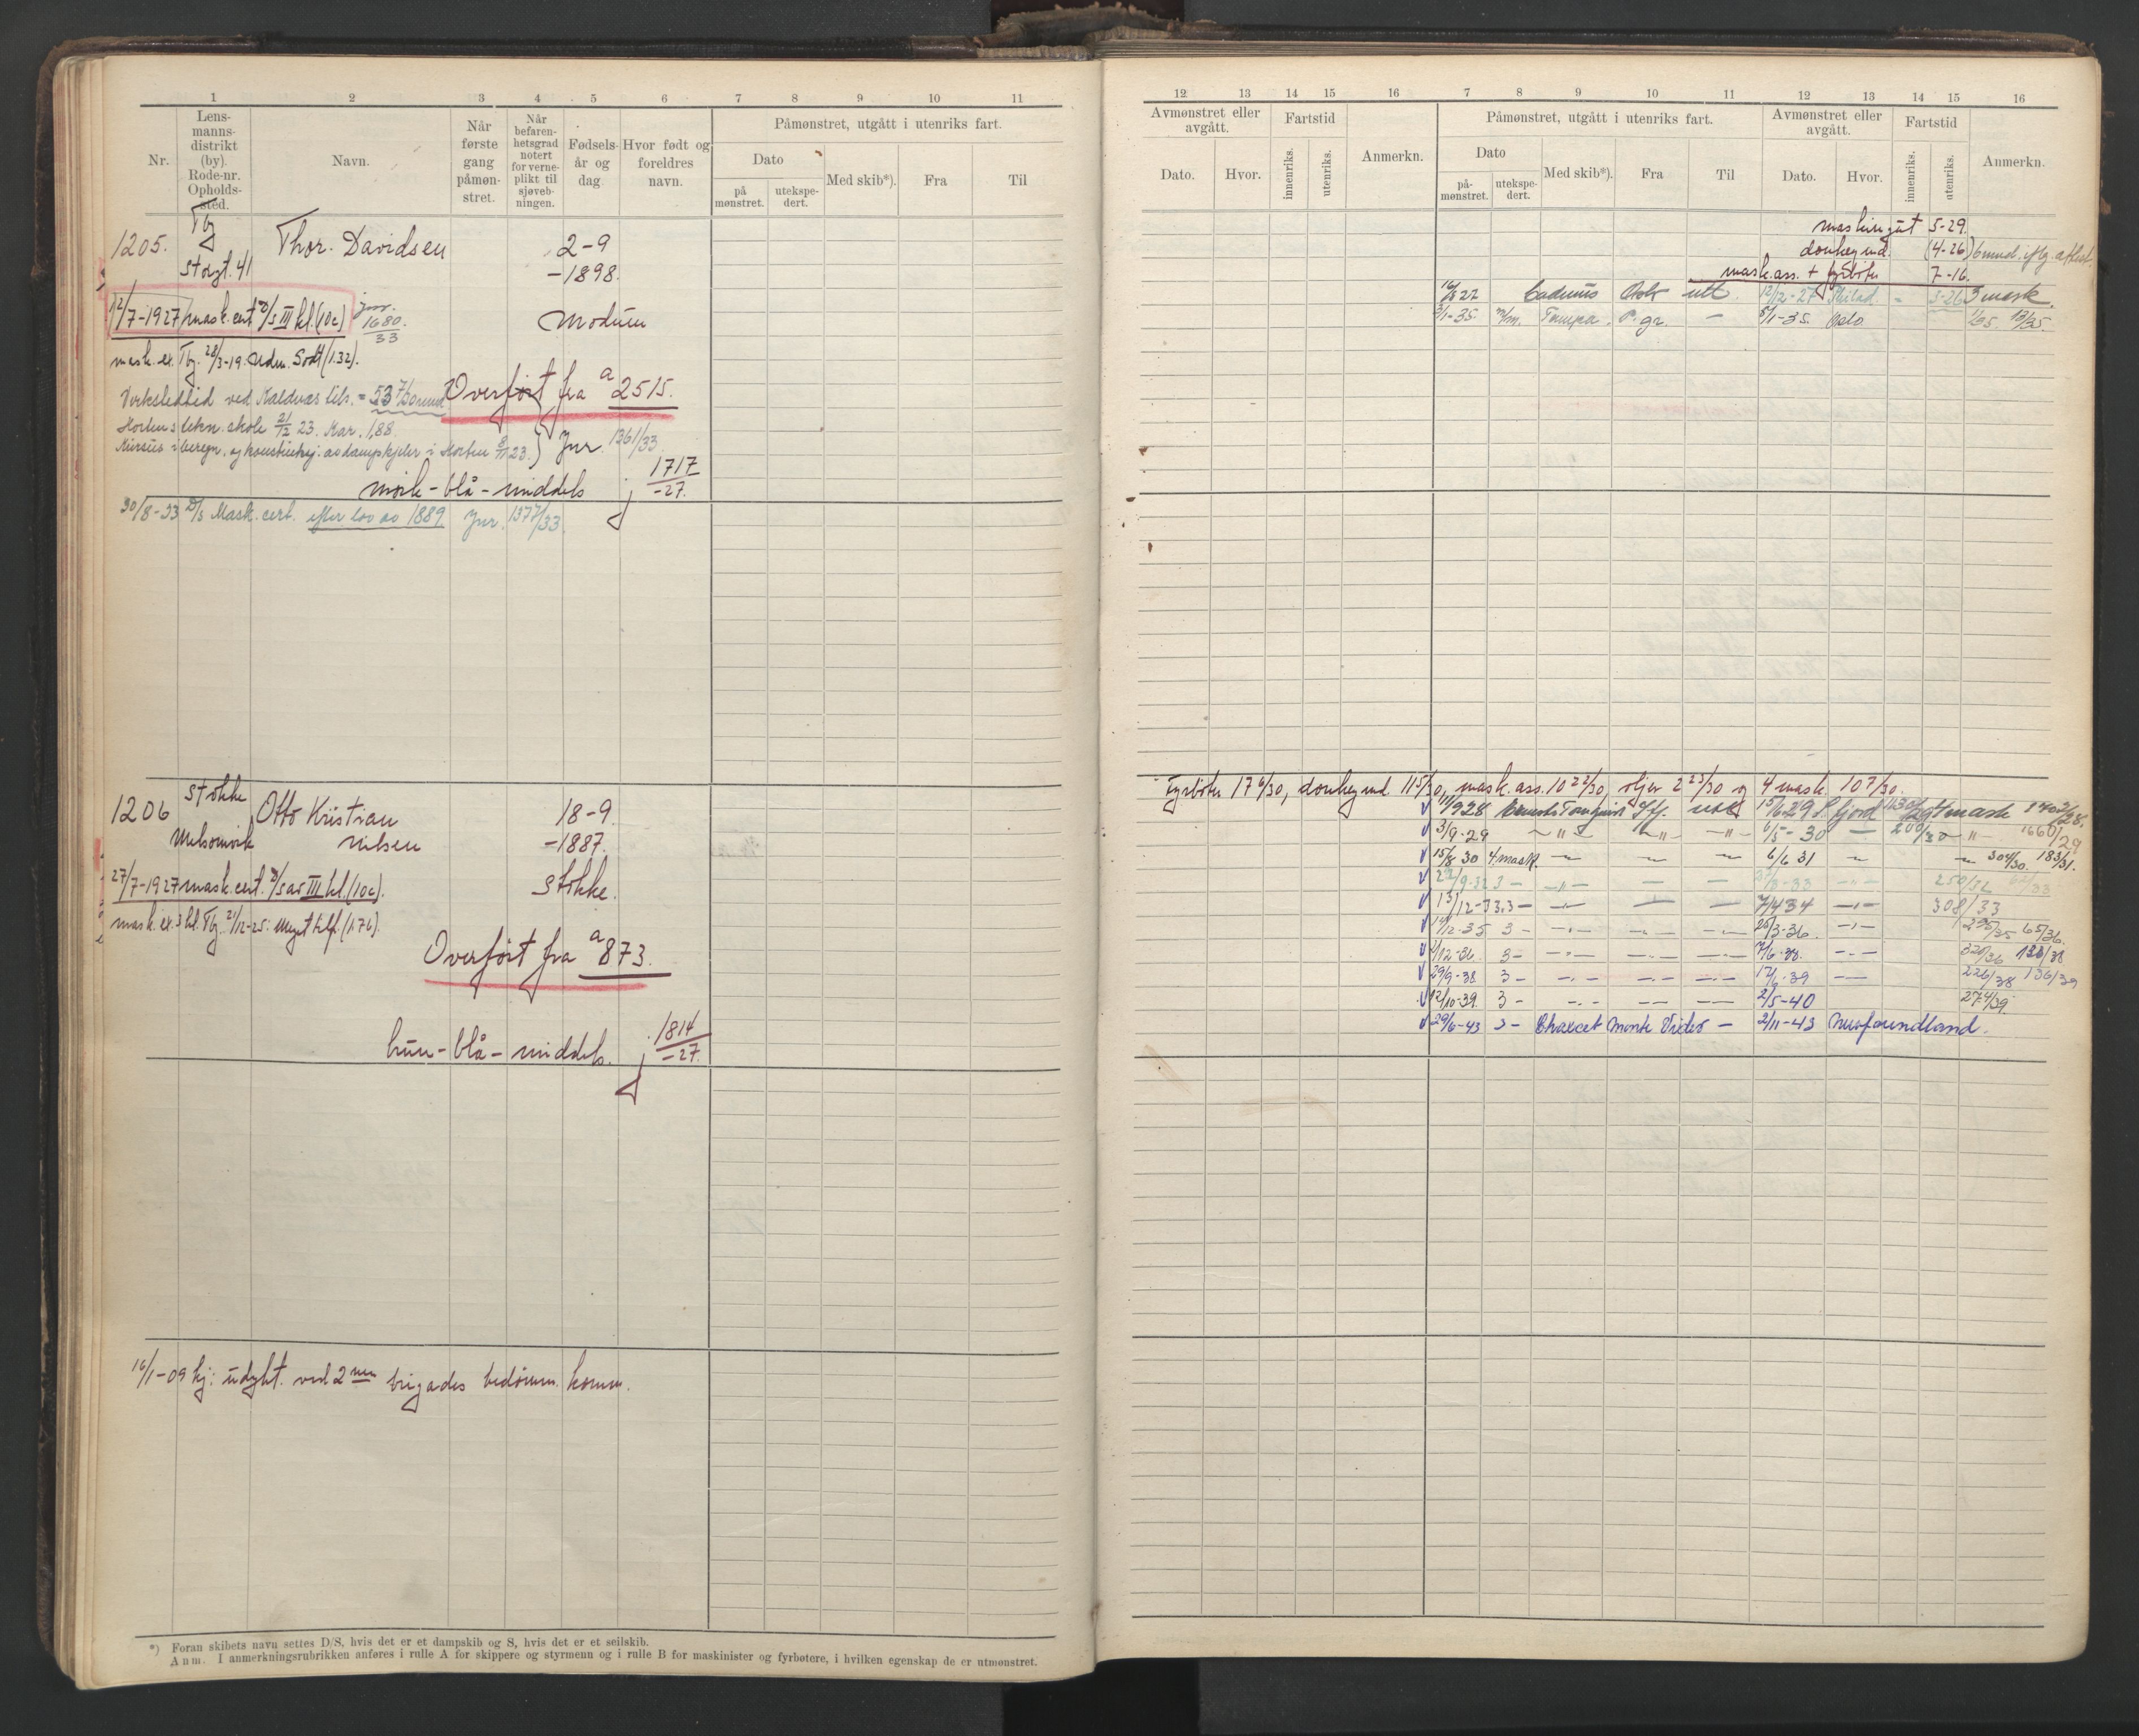 1 2 3 4 5 6 7 8 9 10 11
Nr.
Lens-
manns-
distrikt
(by).
Rode-nr.
Opholds-
sted.
Navn.
Når
første
gang
påmøn-
stret.
Når
befaren-
hetsgrad
notert
for verne-
plikt til
sjøveb-
ningen.
Fødsels-
år og
dag.
Hvor født og
foreldres
navn.
Påmønstret, utgått i utenriks fart.
Dato
på
mønstret.
utekspe-
dert.
Med skib*).
Fra
Til
Tbg
1205. Thor. Davidsen 2-9
Stogt. 41 -1898.
12/7-1927 mask. cert D/S III kl. (10c) jnr. 1680/33 Modum
mask. ex. Tbg. 28/3-19. Uden. Godt (1.32).
Verkstedtid ved Kaldnes
Overført fra a 2515.
Hortens tekn. skole 21/12 23. Kar. 1,88.
Kursus i beregn. og konstruksj. av dampkjeler i Horten 23. } Jnr. 1361/33
mørk - blå - middels j 1717/-27.
30/8-33 D/S Mask. cert. efter lov av 1889 Jnr. 1377/33.
Stokke
1206 Otto Kristian 18-9.
Melsomvik Nilsen -1887.
27/7-1927 mask. cert. D/S av III kl. (10c). Stokke.
mask. ex. 3 kl. Tbg. 21/12-25: Meget tilf. (1.76).
Overført fra a 873.
brun - blå - middels. j 1814/-27.
16/1-09 kj: udygt. ved 2nen brigades bedømm. komm.
*) Foran skibets navn settes D/S, hvis det er et dampskib og S, hvis det er et seilskib.
Anm. I anmerkningsrubrikken anføres i rulle A for skippere og styrmenn og i rulle B for maskinister og fyrbøtere, i hvilken egenskap de er utmønstret.
12 13 14 15 16 7 8 9 10 11 12 13 14 15 16
Avmønstret eller
avgått.
Dato.
Hvor.
Fartstid
innenriks.
utenriks.
Anmerkn.
Påmønstret, utgått i utenriks fart.
Dato
på-
mønstret.
utekspe-
dert.
Med skib*).
Fra
Til
Avmønstret eller
avgått.
Dato.
Hvor.
Fartstid
innenriks.
utenriks.
Anmerkn.
5-29.
donkeymd. (4-26) 6 mnd.
mask. ass. + fyrbøter 7-16.
Cadmus 12/12-27 3-26 3 mask.
3/1-35. m/m. Tampa. P. gr. — 8/1-35. Oslo 1/35. 13/35
Fyrbøter 17 6/30, donkeymd. 11 5/30, mask. ass. 10 22/30, oljer 2 23/30 og 4 mask. 10 7/30.
11/9 28 15/6.29 S. fjord 4 mask
3/9-29 — " — — " — — " — 6/5-30 — 200/30 — " — 1660/29
15/8 30 4. mask. — — — 6/6 31 — — 304/30. 183/31.
3 — — " — — — — " — 250/32
13/12-33. 3 — — " — — — 7/4 34 — " — 308/33
14/12.35 3 — — " — — " — — 25/3-36. — " — 295/35 65/36.
3 — — " — — " — — " — 7/6-38. — " — 320/36
29/9-38 3 — — " — — " — — " — 17/6-39 — — 226/38 136/39
12/10-39. 3 — — " — — — — — 2/5-40 274/39.
29/6-43 3 — Monte Video — 2/11-43 Newfoundland.